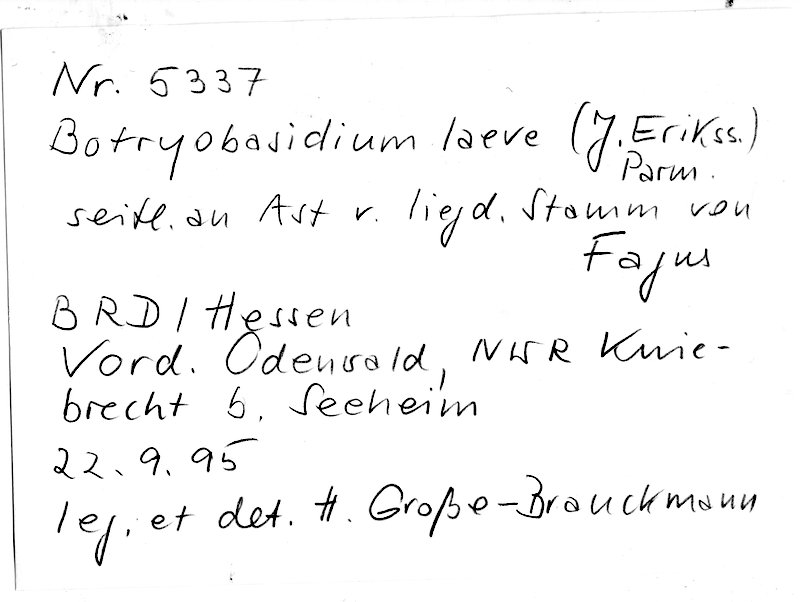 Nr. 5337
Botryobasidium laeve (J. Erikss.)
Parm.
seitl. an Ast v. liegd. Stamm von
Fagus
BRD / Hessen
Vord. Odenwald, NWR Knie-
brecht b. Seeheim
22.9.95
leg. et det. H. Große-Brauckmann